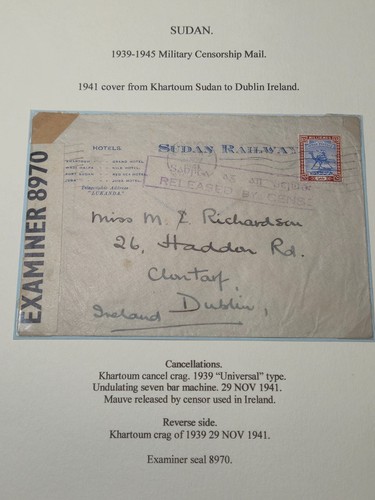 SUDAN.
1939-1945 Military Censorship Mail.
1941 cover from Khartoum Sudan to Dublin Ireland.
EXAMINER 8970
HOTELS.
SUDAN RAILWAY
GRAND HOTEL
RELEASED BY CENSOR
Miss M. E. Richardson
26, Haddon Rd.
Clontarf,
Dublin,
Ireland
Cancellations.
Khartoum cancel crag. 1939 “Universal” type.
Undulating seven bar machine. 29 NOV 1941.
Mauve released by censor used in Ireland.
Reverse side.
Khartoum crag of 1939 29 NOV 1941.
Examiner seal 8970.